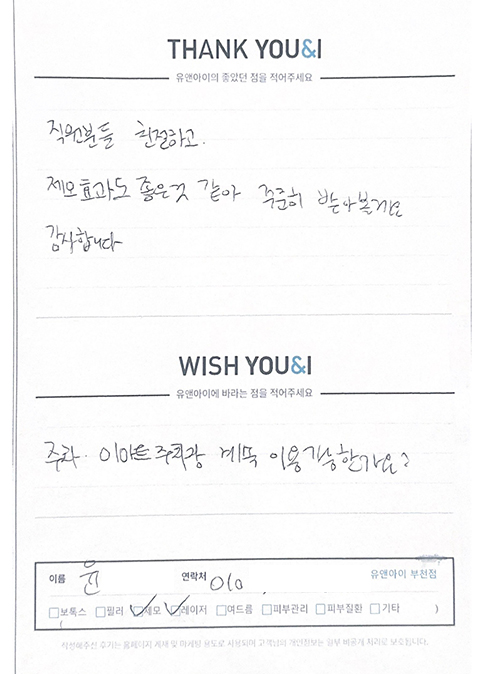 THANK YOU&I
유앤아이의 좋았던 점을 적어주세요
직원분들 친절하고.
제모효과도 좋은것 같아 꾸준히 받아볼게요
감사합니다
WISH YOU&I
유앤아이에 바라는 점을 적어주세요
주차. 이마트주차장 계속 이용가능한가요?
이름 윤 연락처 010 유앤아이 부천점
보톡스 필러 제모 레이저 여드름 피부관리 피부질환 기타 )
작성해주신 후기는 홈페이지 게재 및 마케팅 용도로 사용되며 고객님의 개인정보는 일부 비공개 처리로 보호됩니다.